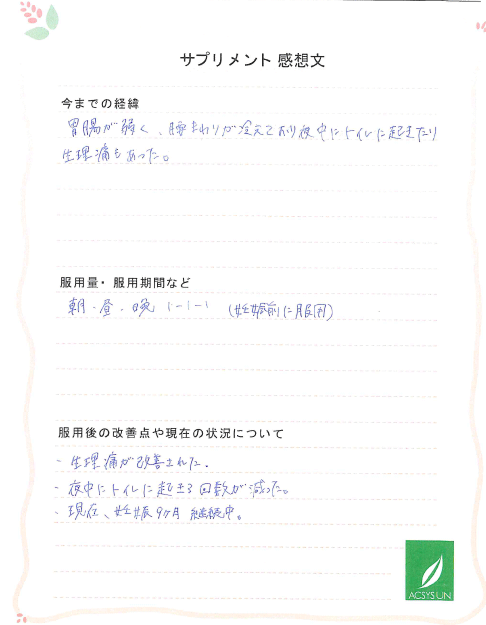 サプリメント 感想文
今までの経緯
胃腸が弱く、腰まわりが冷えており夜中にトイレに起きたり
生理痛もあった。
服用量・服用期間など
朝・昼・晩 1-1-1 (妊娠前に服用)
服用後の改善点や現在の状況について
- 生理痛が改善された.
- 夜中にトイレに起きる回数が減った。
- 現在、妊娠9ヶ月 継続中。
ACSYSUN